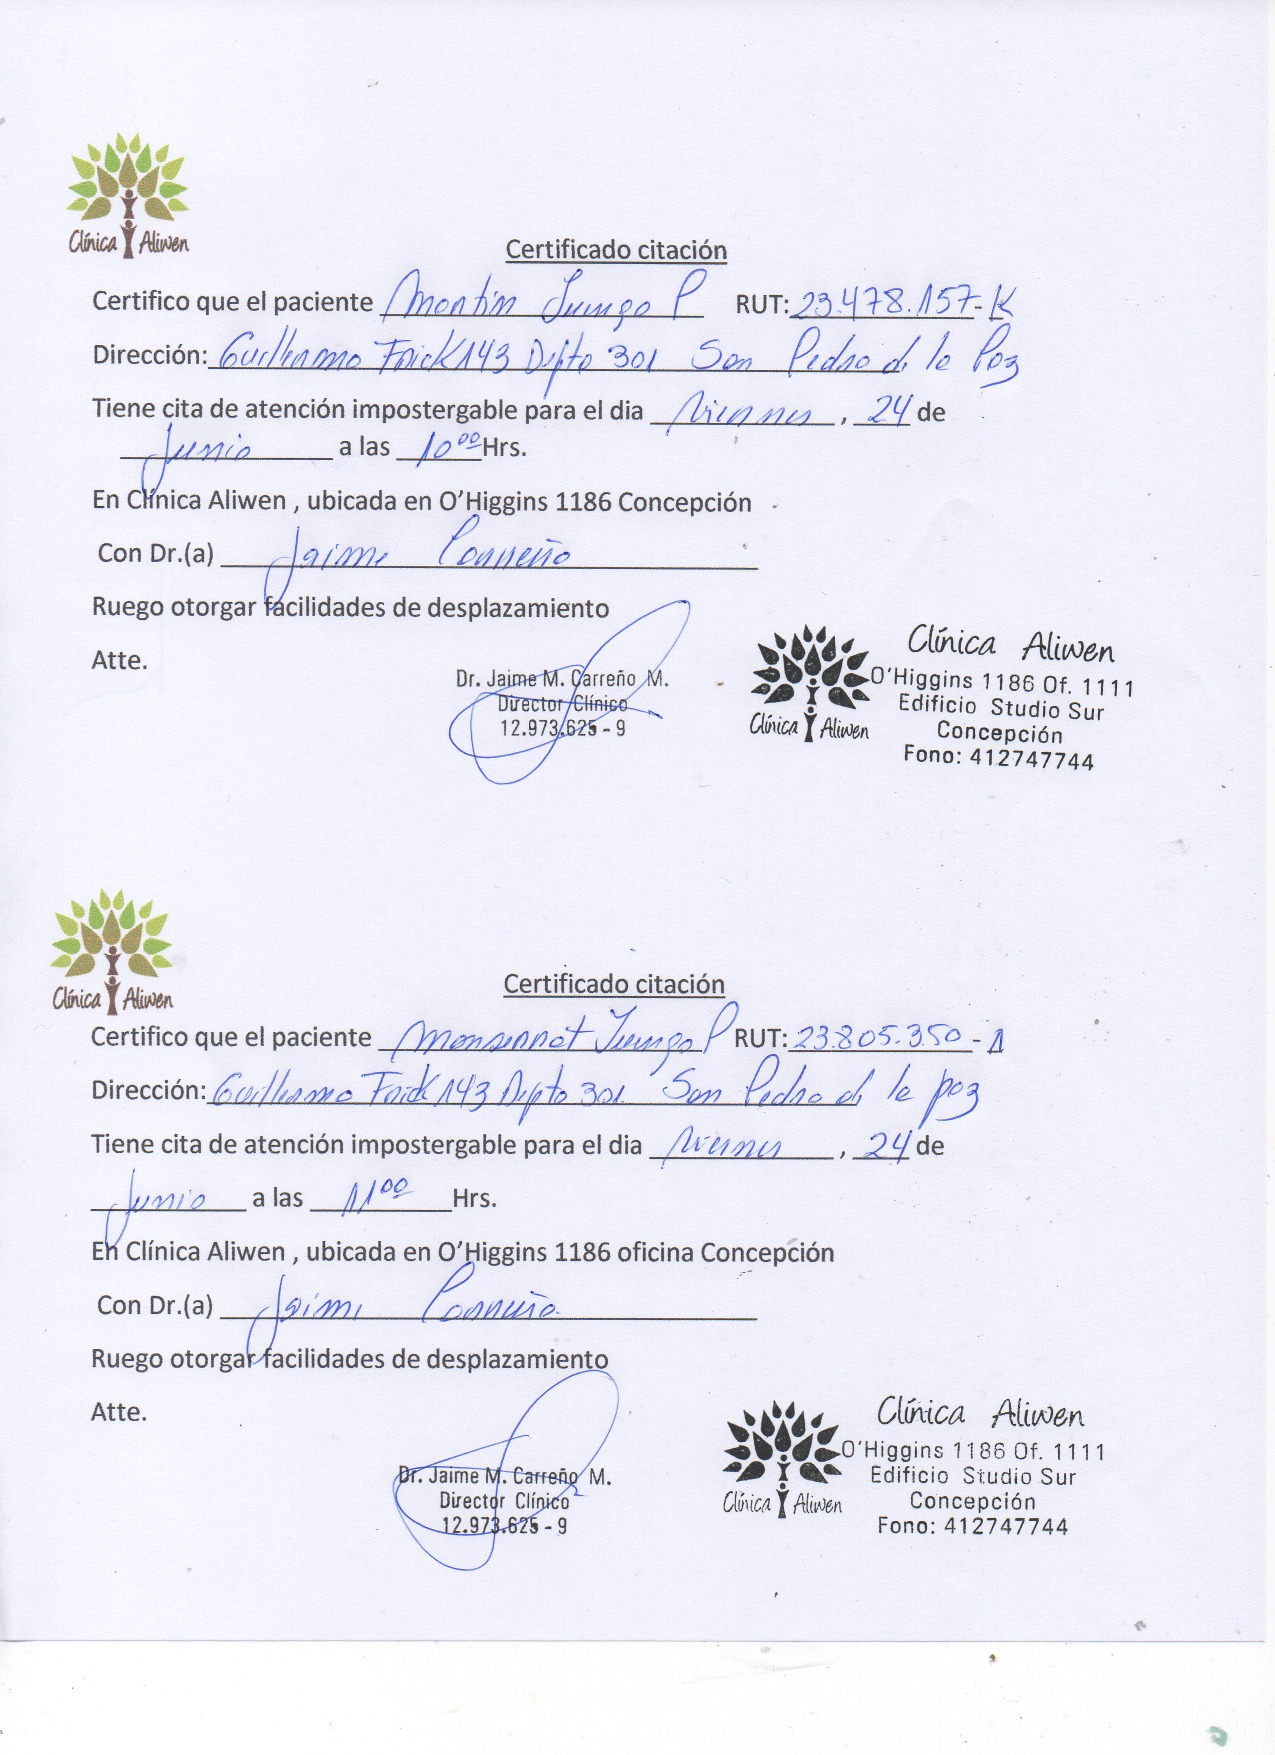 Clínica Aliwen
Certificado citación
Certifico que el paciente Martin P RUT: 23.478.157-K
Dirección: Guillermo Frick 143 Depto 301 San Pedro de la Paz
Tiene cita de atención impostergable para el dia Viernes, 24 de
Junio a las 10:00 Hrs.
En Clínica Aliwen , ubicada en O'Higgins 1186 Concepción
Con Dr.(a) Jaime Carreño
Ruego otorgar facilidades de desplazamiento
Atte.
Dr. Jaime M. Carreño M.
Director Clínico
12.973.625-9
Clínica Aliwen
Clínica Aliwen
O'Higgins 1186 Of. 1111
Edificio Studio Sur
Concepción
Fono: 412747744
Clínica Aliwen
Certificado citación
Certifico que el paciente Monserrat P RUT: 23.805.350-1
Dirección: Guillermo Frick 143 Depto 301 San Pedro de la paz
Tiene cita de atención impostergable para el dia Viernes, 24 de
Junio a las 11:00 Hrs.
En Clínica Aliwen , ubicada en O'Higgins 1186 oficina Concepción
Con Dr.(a) Jaime Carreño
Ruego otorgar facilidades de desplazamiento
Atte.
Dr. Jaime M. Carreño M.
Director Clínico
12.973.625-9
Clínica Aliwen
Clínica Aliwen
O'Higgins 1186 Of. 1111
Edificio Studio Sur
Concepción
Fono: 412747744